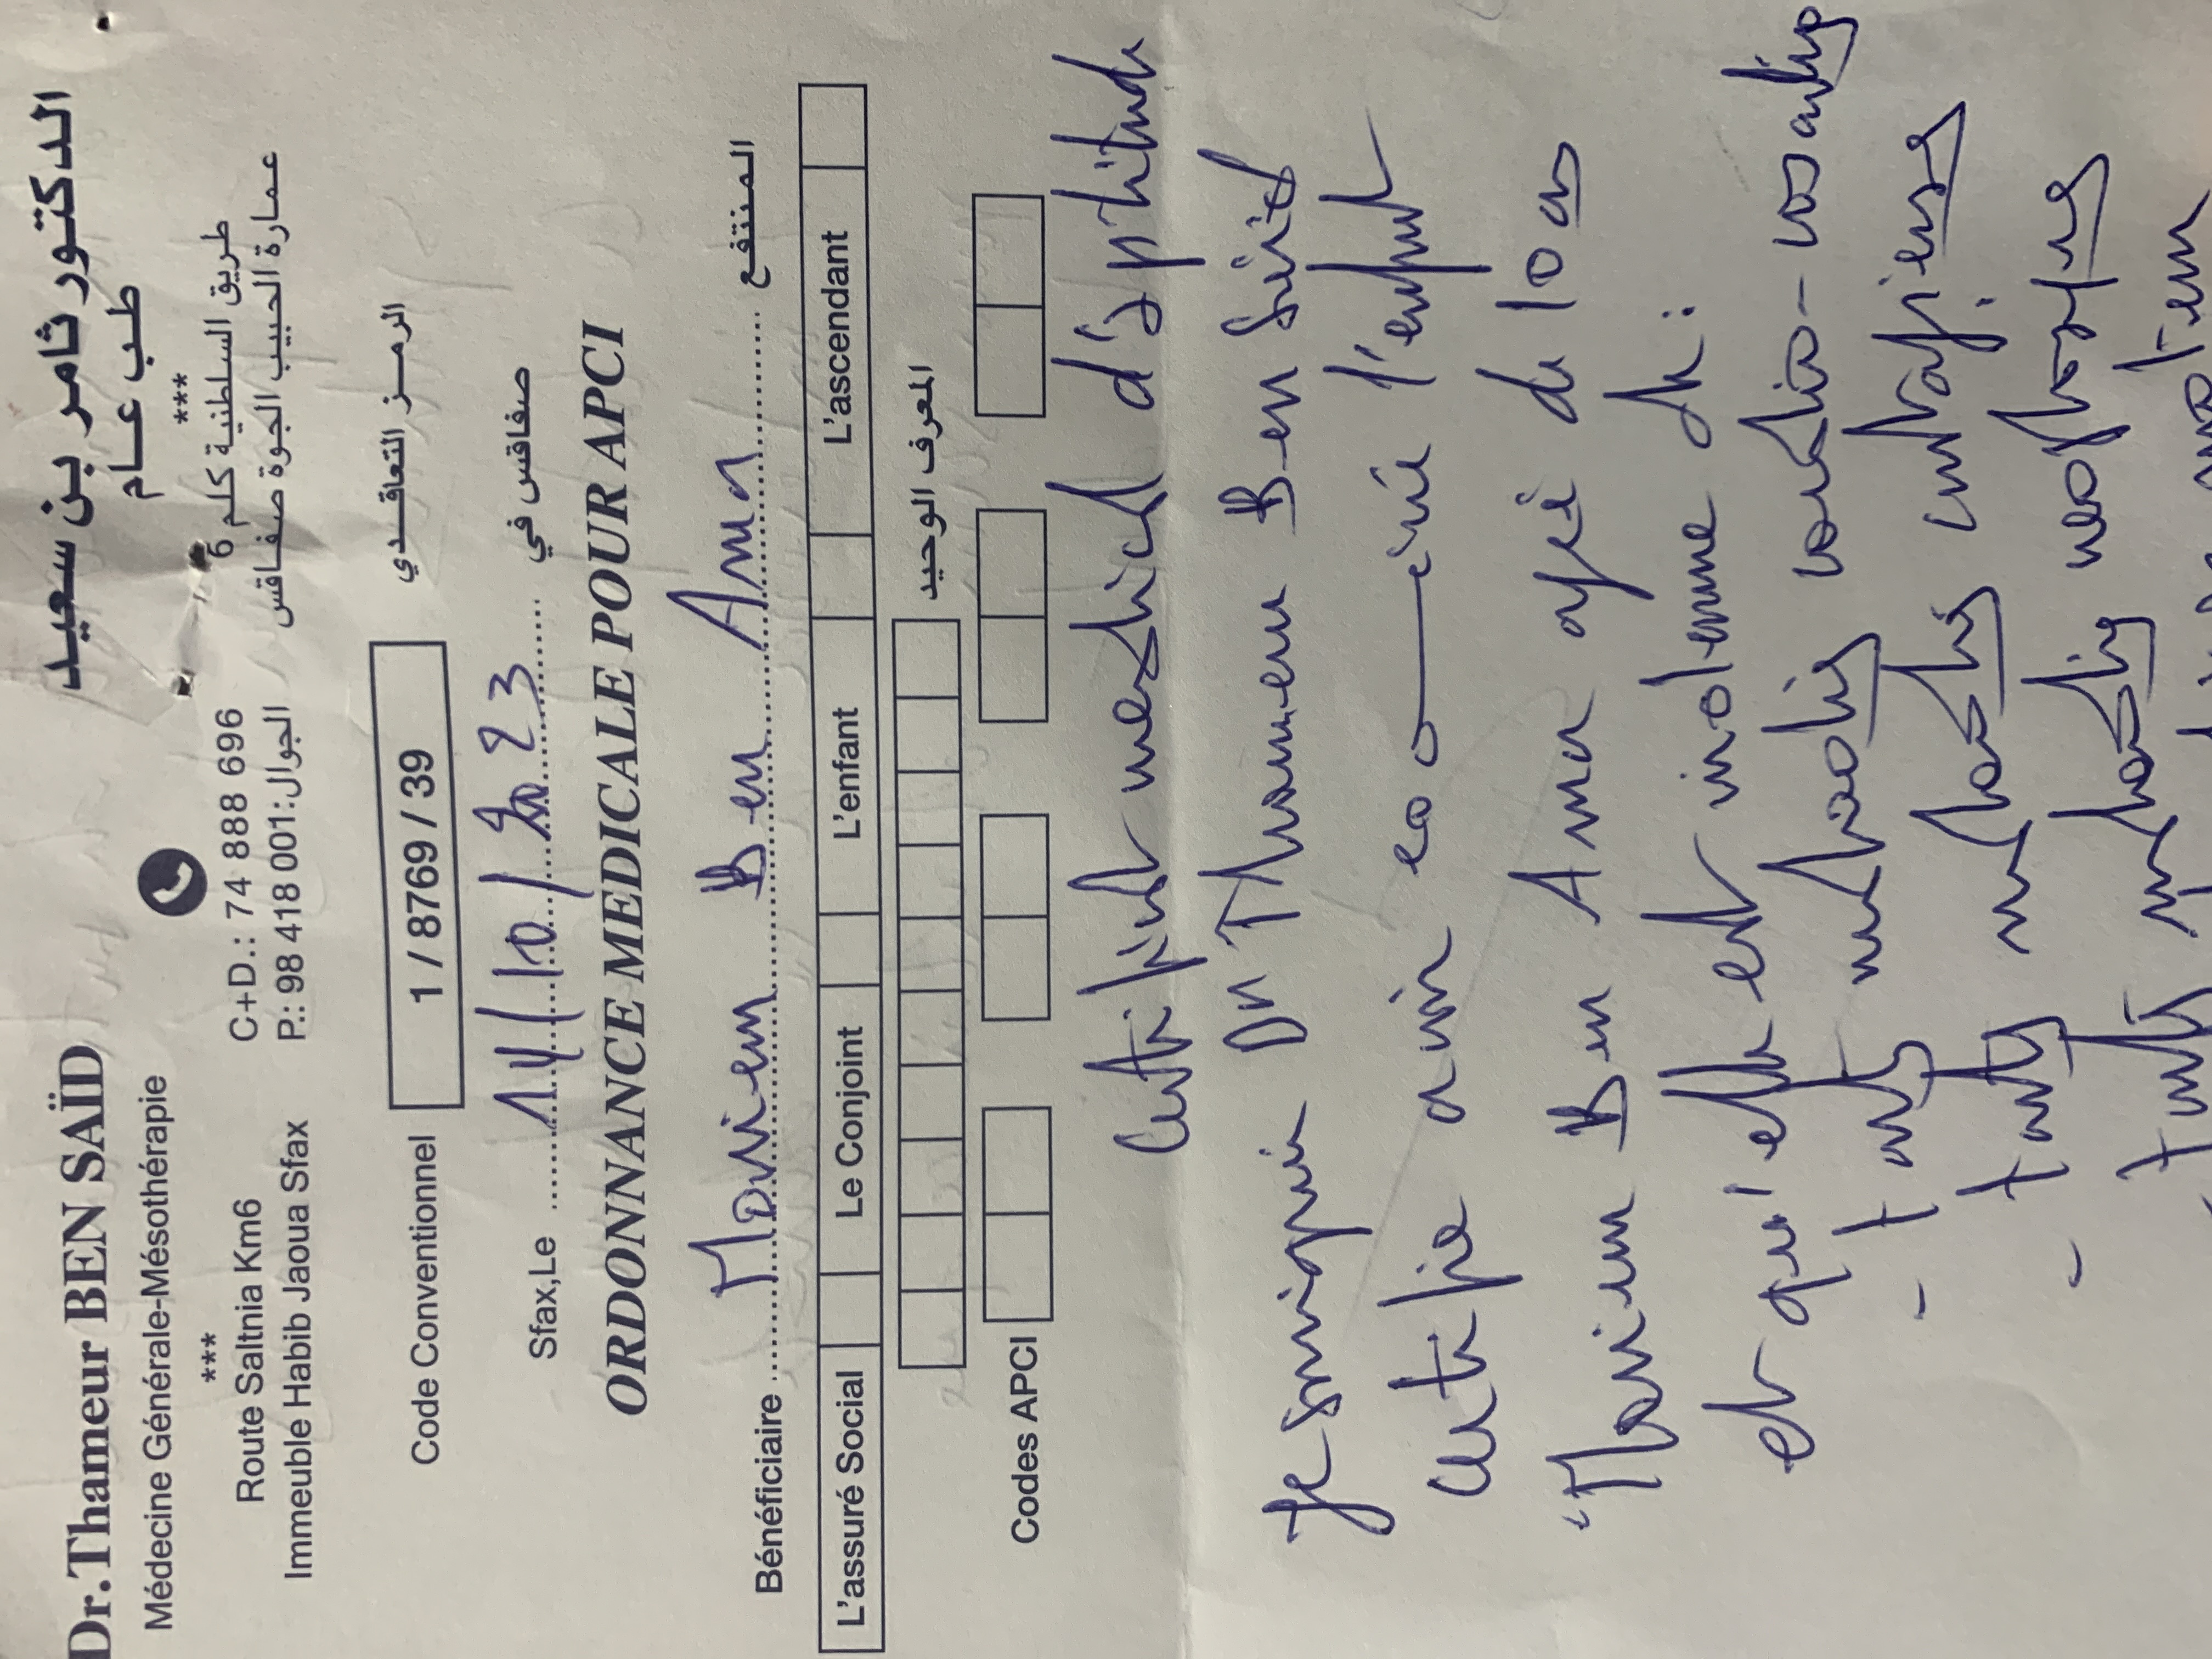 Dr.Thameur BEN SAÏD
الدكتور ثامر بن سعيد
Médecine Générale-Mésothérapie
طب عام
***
***
Route Saltnia Km6
C+D.: 74 888 696
طريق السلطنية كلم 6
Immeuble Habib Jaoua Sfax
P.: 98 418 001:الجوال
عمارة الحبيب الجوة صفاقس
Code Conventionnel
1 / 8769 / 39
الرمز التعاقدي
Sfax,Le 14/10/2023 صفاقس في
ORDONNANCE MEDICALE POUR APCI
Bénéficiaire Mariem Ben Amor المنتفع
L'assuré Social
Le Conjoint
L'enfant
L'ascendant
المعرف الوحيد
Codes APCI
Certificat medical d'aptitude
Je soussigné Dr Thameur Ben Said
certifie avoir l'enfant
Mariem Ben Amor agée de 10 ans
et qu'elle est indemne de:
- toute maladie cardio-vasculaire
- toute maladie contagieuse
toute maladie